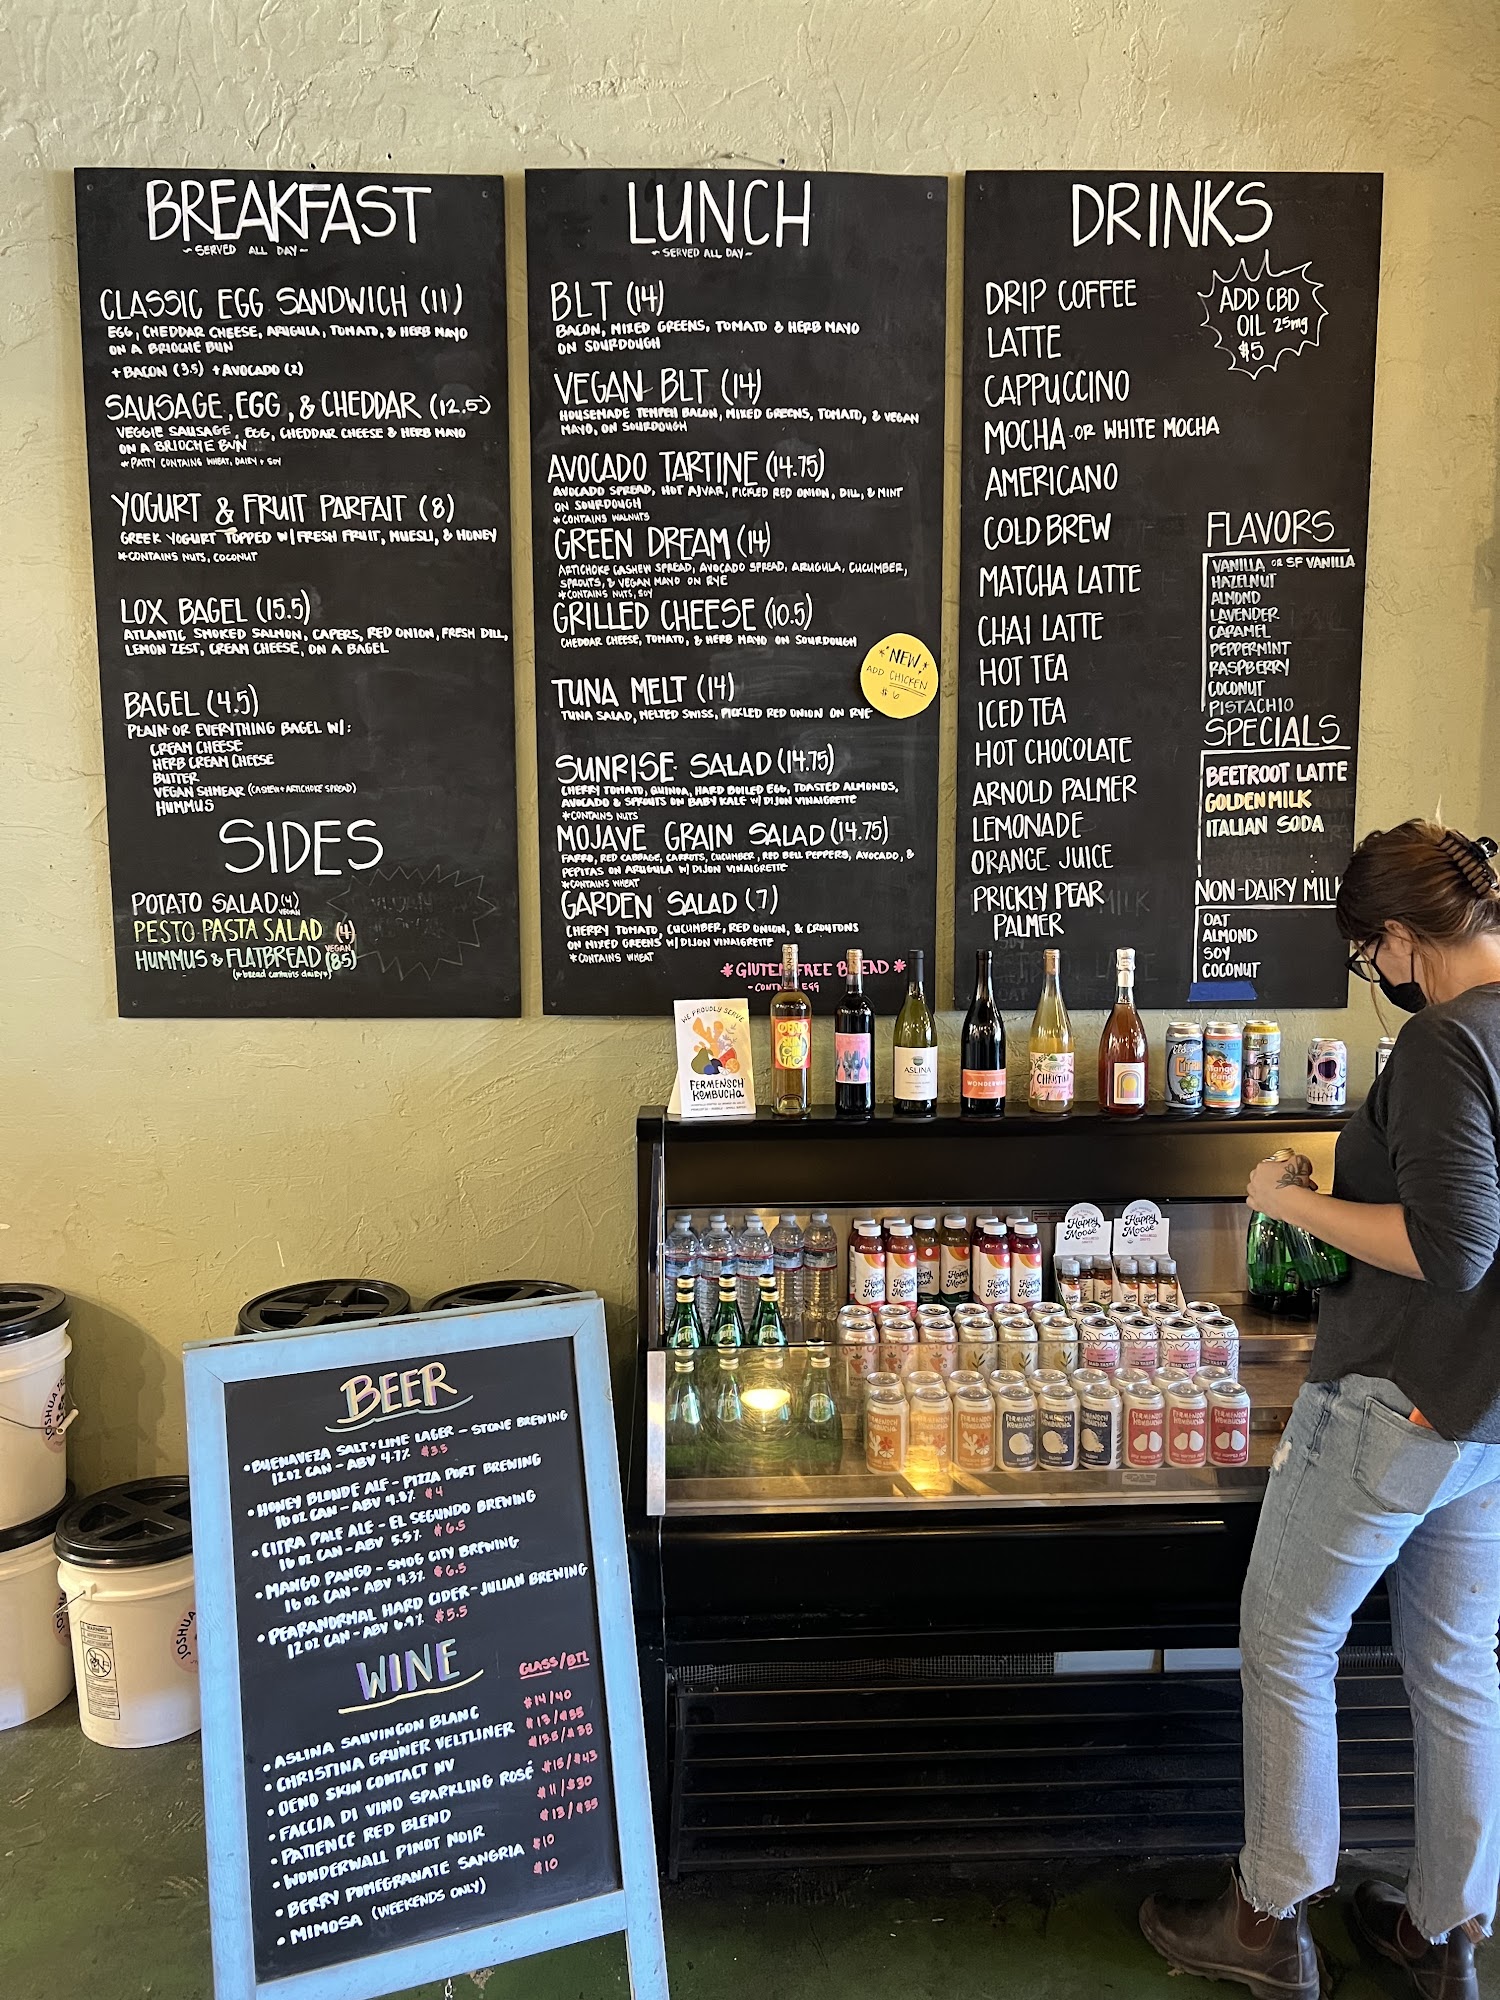 BREAKFAST
~ SERVED ALL DAY ~
CLASSIC EGG SANDWICH (11)
EGG, CHEDDAR CHEESE, ARUGULA, TOMATO, & HERB MAYO
ON A BRIOCHE BUN
+ BACON (3.5) + AVOCADO (2)
SAUSAGE, EGG, & CHEDDAR (12.5)
VEGGIE SAUSAGE, EGG, CHEDDAR CHEESE & HERB MAYO
ON A BRIOCHE BUN
* PATTY CONTAINS WHEAT, DAIRY + SOY
YOGURT & FRUIT PARFAIT (8)
GREEK YOGURT TOPPED W/ FRESH FRUIT, MUESLI, & HONEY
*CONTAINS NUTS, COCONUT
LOX BAGEL (15.5)
ATLANTIC SMOKED SALMON, CAPERS, RED ONION, FRESH DILL,
LEMON ZEST, CREAM CHEESE, ON A BAGEL
BAGEL (4.5)
PLAIN OR EVERYTHING BAGEL W/:
CREAM CHEESE
HERB CREAM CHEESE
BUTTER
VEGAN SHMEAR (CASHEW + ARTICHOKE SPREAD)
HUMMUS
SIDES
POTATO SALAD (4)
VEGAN
PESTO PASTA SALAD (4)
VEGAN
HUMMUS & FLATBREAD (8.5)
(*bread contains dairy*)
LUNCH
~ SERVED ALL DAY ~
BLT (14)
BACON, MIXED GREENS, TOMATO & HERB MAYO
ON SOURDOUGH
VEGAN BLT (14)
HOUSEMADE TEMPEH BACON, MIXED GREENS, TOMATO, & VEGAN
MAYO, ON SOURDOUGH
AVOCADO TARTINE (14.75)
AVOCADO SPREAD, HOT AJVAR, PICKLED RED ONION, DILL, & MINT
ON SOURDOUGH
*CONTAINS WALNUTS
GREEN DREAM (14)
ARTICHOKE CASHEW SPREAD, AVOCADO SPREAD, ARUGULA, CUCUMBER,
SPROUTS, & VEGAN MAYO ON RYE
*CONTAINS NUTS, SOY
GRILLED CHEESE (10.5)
CHEDDAR CHEESE, TOMATO, & HERB MAYO ON SOURDOUGH
*NEW*
ADD CHICKEN
$6
TUNA MELT (14)
TUNA SALAD, MELTED SWISS, PICKLED RED ONION ON RYE
SUNRISE SALAD (14.75)
CHERRY TOMATO, QUINOA, HARD BOILED EGG, TOASTED ALMONDS,
AVOCADO & SPROUTS ON BABY KALE W/ DIJON VINAIGRETTE
*CONTAINS NUTS
MOJAVE GRAIN SALAD (14.75)
FARRO, RED CABBAGE, CARROTS, CUCUMBER, RED BELL PEPPERS, AVOCADO, &
PEPITAS ON ARUGULA W/ DIJON VINAIGRETTE
*CONTAINS WHEAT
GARDEN SALAD (7)
CHERRY TOMATO, CUCUMBER, RED ONION, & CROUTONS
ON MIXED GREENS W/ DIJON VINAIGRETTE
*CONTAINS WHEAT
*GLUTEN FREE BREAD*
EGG
DRINKS
DRIP COFFEE
LATTE
CAPPUCCINO
MOCHA OR WHITE MOCHA
AMERICANO
COLD BREW
MATCHA LATTE
CHAI LATTE
HOT TEA
ICED TEA
HOT CHOCOLATE
ARNOLD PALMER
LEMONADE
ORANGE JUICE
PRICKLY PEAR
PALMER
ADD CBD
OIL 25mg
$5
FLAVORS
VANILLA OR SF VANILLA
HAZELNUT
ALMOND
LAVENDER
CARAMEL
PEPPERMINT
RASPBERRY
COCONUT
PISTACHIO
SPECIALS
BEETROOT LATTE
GOLDEN MILK
ITALIAN SODA
NON-DAIRY MILK
OAT
ALMOND
SOY
COCONUT
WE PROUDLY SERVE
FERMENSCH
KOMBUCHA
ASLINA
WONDERWALL
CHRISTINA
Citra
Mango
Happy
Moose
Happy
Moose
MAD TASTY
FERMENSCH
KOMBUCHA
BEER
• BUENAVEZA SALT + LIME LAGER - STONE BREWING
12 OZ CAN - ABV 4.7% $3.5
• HONEY BLONDE ALE - PIZZA PORT BREWING
16 OZ CAN - ABV 4.8% $4
• CITRA PALE ALE - EL SEGUNDO BREWING
16 OZ CAN - ABV 5.5% $6.5
• MANGO PANGO - SMOG CITY BREWING
16 OZ CAN - ABV 4.3% $6.5
• PEARANORMAL HARD CIDER - JULIAN BREWING
12 OZ CAN - ABV 6.9% $5.5
WINE
GLASS/BTL
• ASLINA SAUVINGON BLANC $14/40
• CHRISTINA GRÜNER VELTLINER $13/$35
• OENO SKIN CONTACT NV $13.5/$38
• FACCIA DI VINO SPARKLING ROSÉ $15/$43
• PATIENCE RED BLEND $11/$30
• WONDERWALL PINOT NOIR $13/$35
• BERRY POMEGRANATE SANGRIA $10
• MIMOSA (WEEKENDS ONLY) $10
JOSHUA
JOSHUA
WARNING